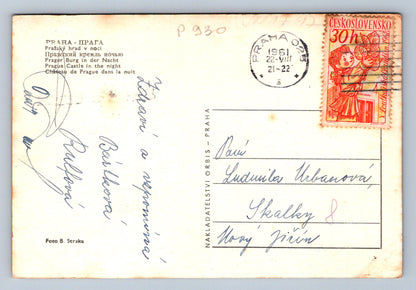 P 930
PRAHA - ПРАГА
Pražský hrad v noci
Пражский кремль ночью
Prager Burg in der Nacht
Prague Castle in the night
Château de Prague dans la nuit
Zdraví a vzpomíná
Bártková
Foto B. Straka
NAKLADATELSTVÍ ORBIS - PRAHA
PRAHA 025
1961
22-VIII
21-22
a
ČESKOSLOVENSKO
30 h
Paní
Ludmila Urbanová,
Skalky 8
Nový Jičín